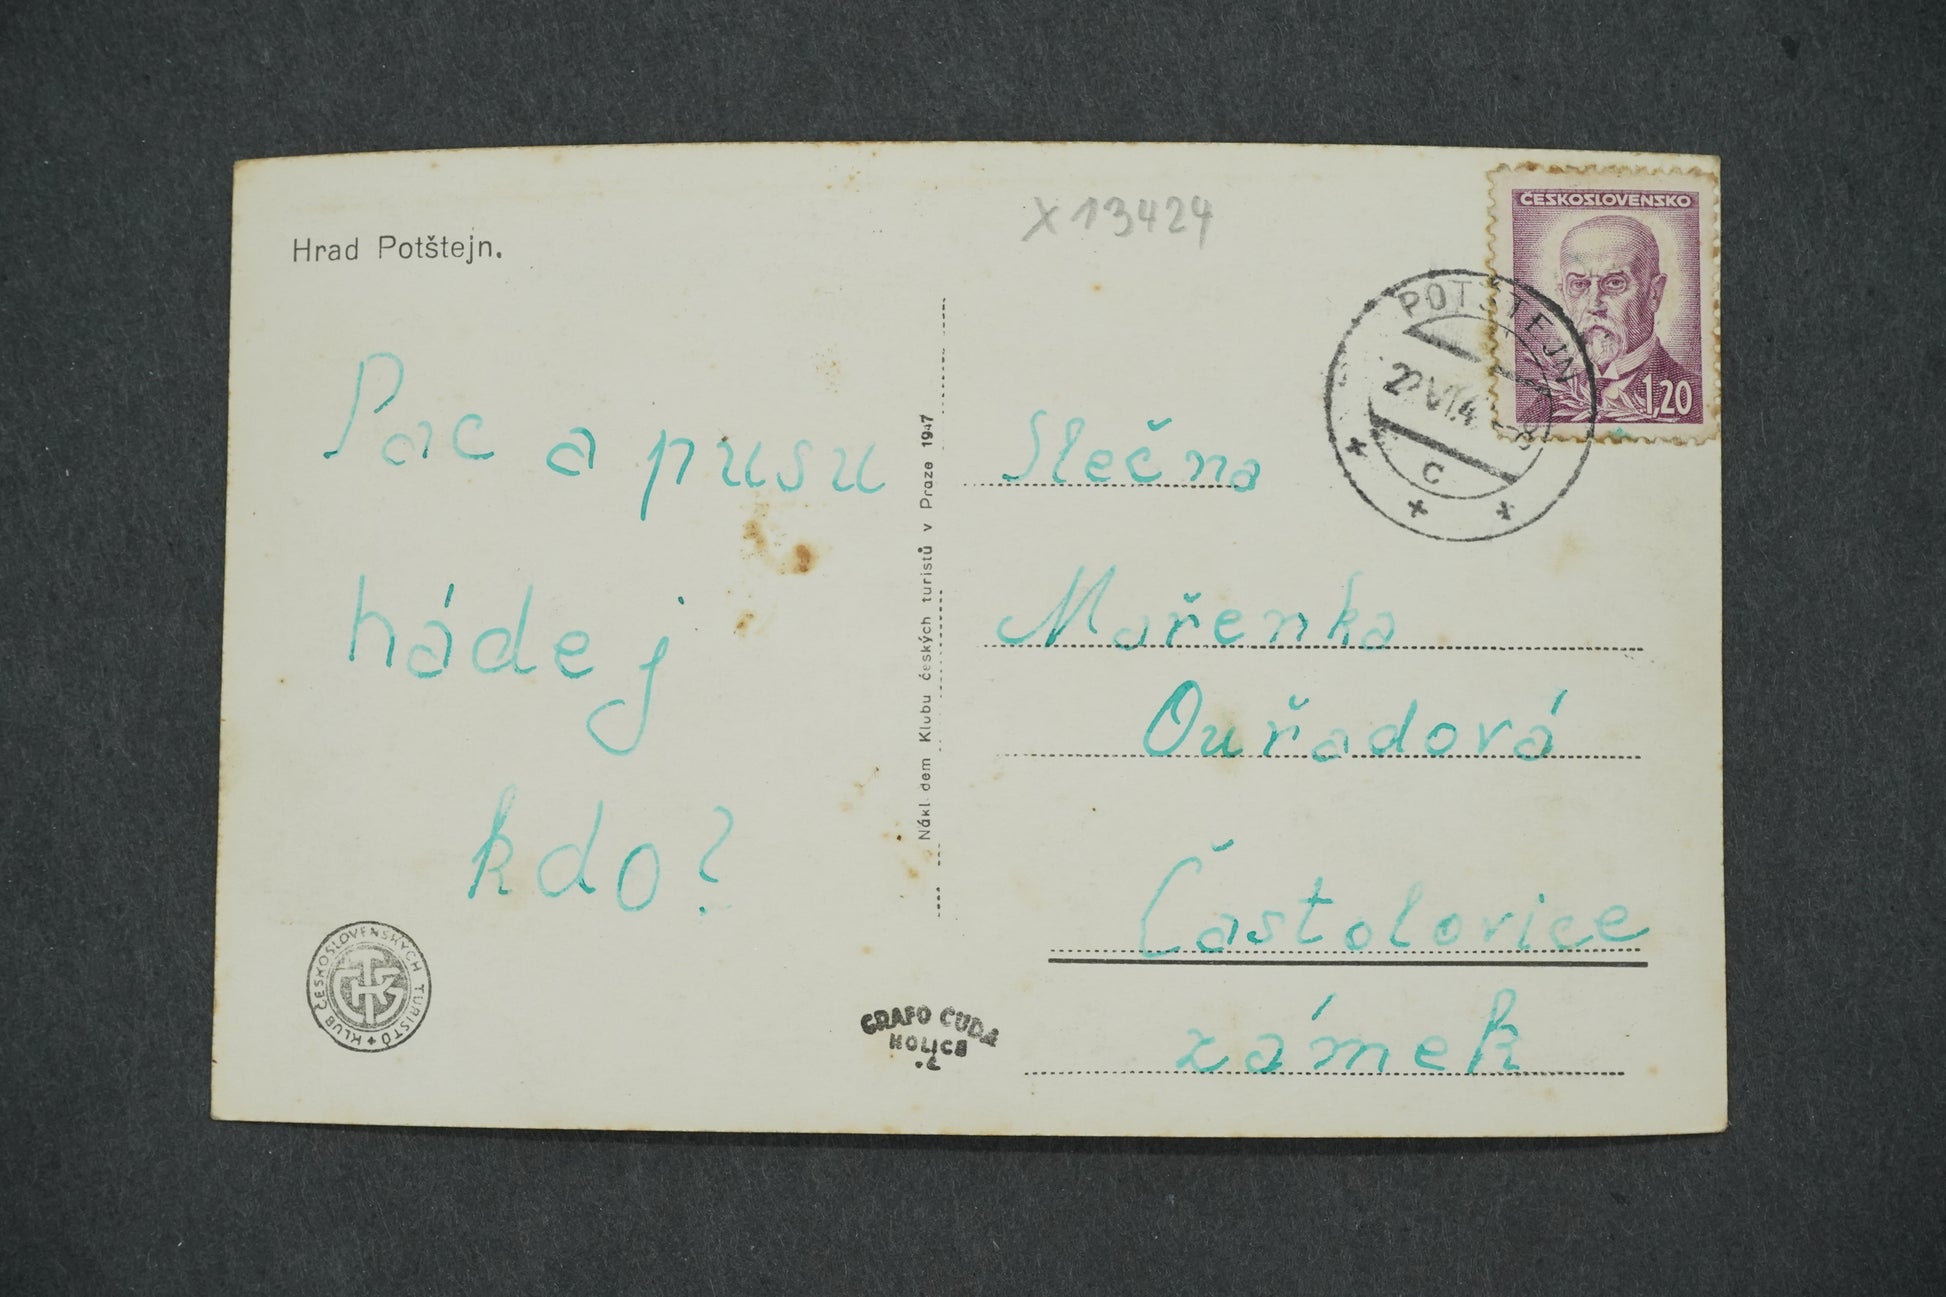 Hrad Potštejn.
X 13424
ČESKOSLOVENSKO
1,20
POTŠTEJN
22.VI.4
C
Pac a pusu
hádej
kdo?
Nákladem Klubu českých turistů v Praze 1947
Slečna
Mařenka
Ouřadová
Častolovice
zámek
KLUB ČESKOSLOVENSKÝCH TURISTŮ
KČT
GRAFO ČUDA
HOLICE